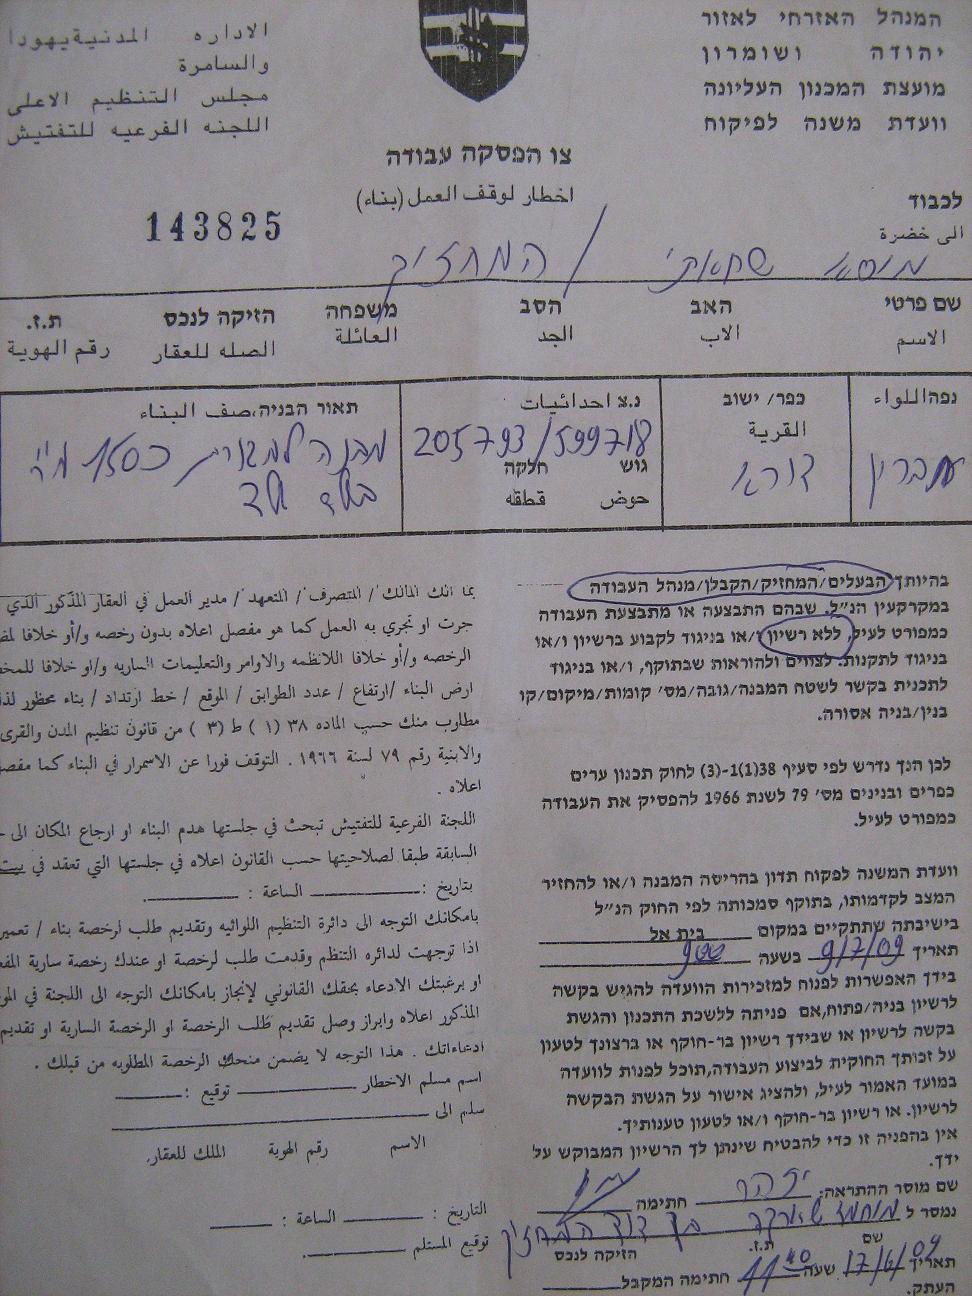 המנהל האזרחי לאזור
יהודה ושומרון
מועצת המכנון העליונה
וועדת משנה לפיקוח
الاداره المدنية يهودا
والسامرة
مجلس التنظيم الاعلى
اللجنه الفرعيه للتفتيش
צו הפסקה עבודה
اخطار لوقف العمل (بناء)
143825
לכבוד
الى حضرة
המחזיק
שם פרטי האב הסב משפחה הזיקה לנכס ת.ז.
الاسم الاب الجد العائلة الصله للعقار رقم الهوية
נפה اللواء
חברון
כפר/ ישוב
القرية
דורא
נ.צ احداثيات
205793/599718
גוש חלקה
حوض قطעه
תאור הבניה، صف البناء
מבנה למגורים כ 150 מ"ר
בשלד
בהיותך הבעלים/המחזיק/הקבלן/מנהל העבודה
במקרקעין הנ"ל. שבהם התבצעה או מתבצעת העבודה
כמפורט לעיל, ללא רשיון ו/או בניגוד לקבוע ברשיון ו/או
בניגוד לתקנות. לצווים ולהוראות שבתוקף, ו/או בניגוד
לתכנית בקשר לשטח המבנה/גובה/מס' קומות/מיקום/קו
בנין/בניה אסורה.
לכן הנך נדרש לפי סעיף 38(1)-(3) לחוק תכנון ערים
כפרים ובנינים מס' 79 לשנת 1966 להפסיק את העבודה
כמפורט לעיל.
וועדת המשנה לפקוח תדון בהריסה המבנה ו/או להחזיר
המצב לקדמותו, בתוקף סמכותה לפי החוק הנ"ל
בישיבתה שתתקיים במקום בית אל
תאריך 9/7/09 בשעה 900
בידך האפשרות לפנות למזכירות הוועדה להגיש בקשה
לרשיון בניה/פתוח,אם פניתה ללשכת התכנון והגשת
בקשה לרשיון או שבידך רשיון בר-חוקף או ברצונך לטעון
על זכותך החוקית לביצוע העבודה,תוכל לפנות לוועדה
במועד האמור לעיל, ולהציג אישור על הגשת הבקשה
לרשיון. או רשיון בר-חוקף ו/או לטעון טענותיך.
אין בהפניה זו כדי להבטיח שינתן לך הרשיון המבוקש על
ידך.
שם מוסר ההתראה: חתימה
נמסר ל המחזיק
שם ת.ז. הזיקה לנכס
תאריך 17/6/09 שעה 11 40 חתימה המקבל
העתק.
بما انك المالك / المتصرف / المتعهد / مدير العمل في العقار المذكور الذي
جرت او تجري به العمل كما هو مفصل اعلاه بدون رخصه و/أو خلافا
الرخصه و/أو خلافا للانظمه والاوامر والتعليمات الساريه و/او خلافا
ارض البناء /ارتفاع / عدد الطوابق / الموقع / خط ارتداد / بناء محظور
مطلوب منك حسب الماده ٣٨ (١) ط (٣) من قانون تنظيم المدن والقرى
والابنية رقم ٧٩ لسنة ١٩٦٦ . التوقف فورا عن الاسمرار في البناء كما
اعلاه .
اللجنة الفرعية للتفتيش تبحث في جلستها هدم البناء او ارجاع المكان الى
السابقة طبقا لصلاحيتها حسب القانون اعلاه في جلستها التي تعقد في
بتاريخ : الساعة :
بامكانك التوجه الى دائرة التنظيم اللوائيه وتقديم طلب لرخصة بناء / تعمير
اذا توجهت لدائره التنظم وقدمت طلب لرخصة او عندك رخصة سارية
او برغبتك الادعاء بحقك القانوني لإنجاز بامكانك التوجه الى اللجنة في
المذكور اعلاه وابراز وصل تقديم طلب الرخصة او الرخصة السارية او تقديم
ادعاءاتك . هذا التوجه لا يضمن منحك الرخصة المطلوبه من قبلك .
اسم مسلم الاخطار توقيع :
سلم الى
الاسم رقم الهوية الملك للعقار.
التاريخ : الساعة :
توقيع المستلم